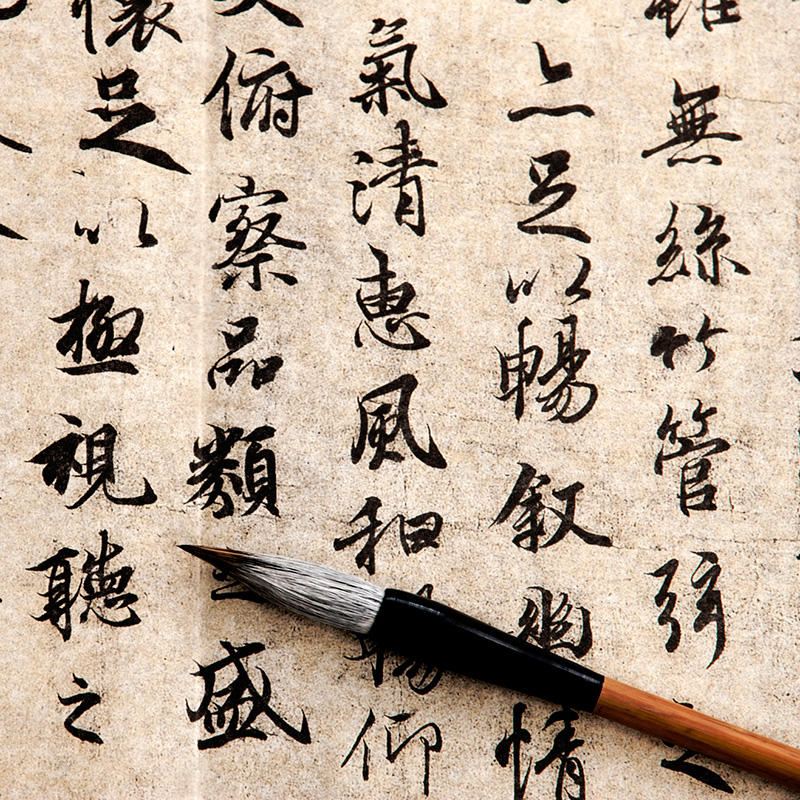 雖無絲竹管弦之
亦足以暢叙幽情
氣清惠風和暢仰
俯察品類盛
懷足以極視聽之